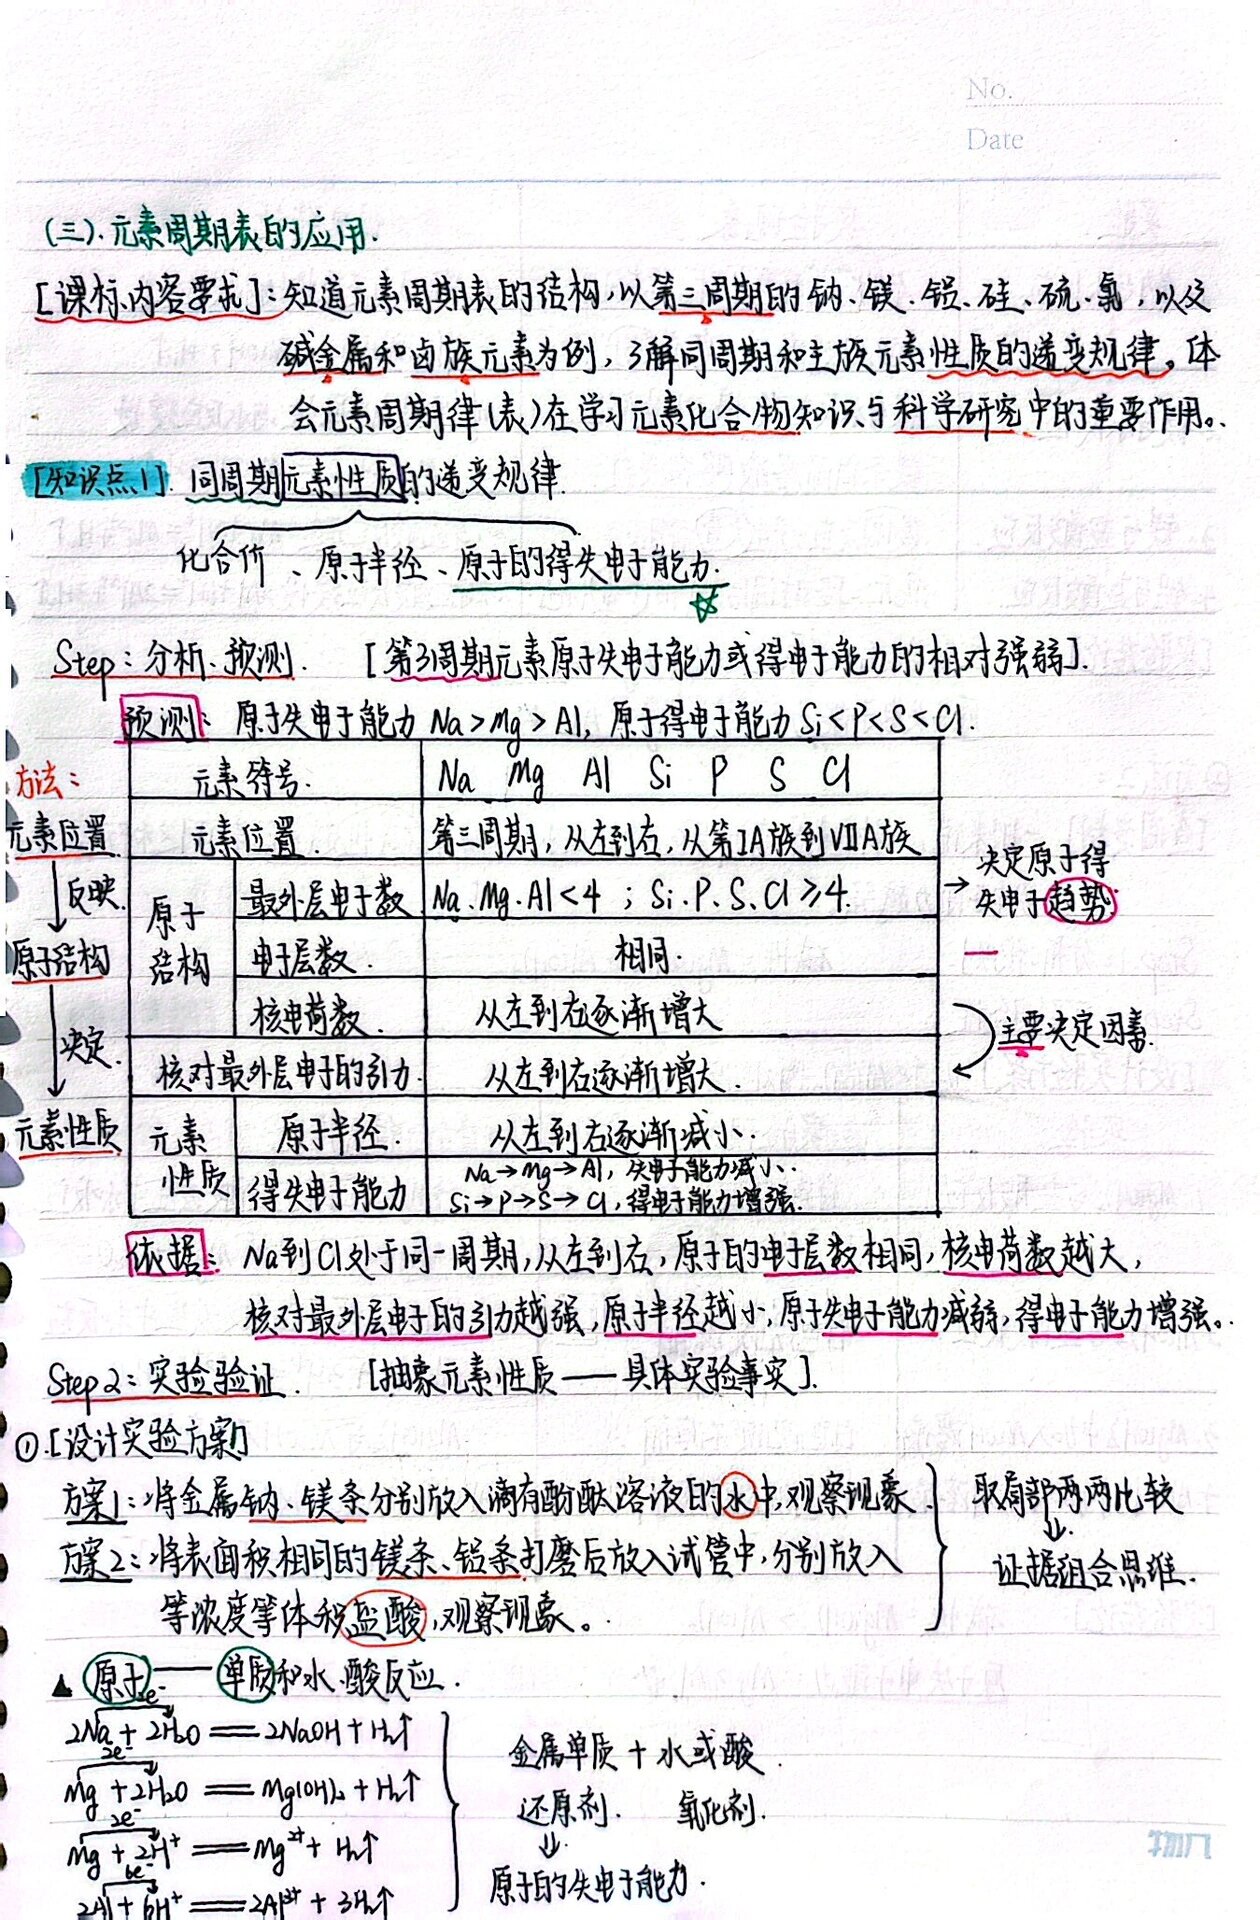 No.
Date
(三).元素周期表的应用.
[课标、内容要求]:知道元素周期表的结构,以第三周期的钠、镁、铝、硅、硫、氯,以及
碱金属和卤族元素为例,了解同周期和主族元素性质的递变规律。体
会元素周期律(表)在学习元素化合物知识与科学研究中的重要作用。
[知识点1] 同周期元素性质的递变规律
化合价、原子半径、原子的得失电子能力.
Step:分析、预测. [第3周期元素原子失电子能力或得电子能力的相对强弱].
预测:原子失电子能力 Na>Mg>Al,原子得电子能力 Si<P<S<Cl.
方法:
元素符号. Na Mg Al Si P S Cl
元素位置 元素位置. 第三周期,从左到右,从第IA族到VIIA族
反映. 原子结构 最外层电子数 Na.Mg.Al<4 ; Si.P.S.Cl≥4. →决定原子得失电子趋势
原子结构 电子层数. 相同.
核电荷数. 从左到右逐渐增大 主要决定因素.
决定. 核对最外层电子的引力. 从左到右逐渐增大.
元素性质 元素性质 原子半径. 从左到右逐渐减小.
得失电子能力 Na→Mg→Al,失电子能力减小.
Si→P→S→Cl,得电子能力增强.
依据:Na到Cl处于同一周期,从左到右,原子的电子层数相同,核电荷数越大,
核对最外层电子的引力越强,原子半径越小,原子失电子能力减弱,得电子能力增强。
Step2:实验验证. [抽象元素性质——具体实验事实].
①.[设计实验方案]
方案1:将金属钠、镁条分别放入滴有酚酞溶液的水中,观察现象. 取局部两两比较
方案2:将表面积相同的镁条、铝条打磨后放入试管中,分别放入 ↓.
证据组合思维.
等浓度等体积盐酸,观察现象。
▲ 原子——单质和水、酸反应.
2e⁻
2Na+2H₂O══2NaOH+H₂↑
2e⁻
Mg+2H₂O══Mg(OH)₂+H₂↑
2e⁻
Mg+2H⁺══Mg²⁺+H₂↑
6e⁻
2Al+6H⁺══2Al³⁺+3H₂↑
金属单质+水或酸.
还原剂. 氧化剂.
↓
原子的失电子能力.